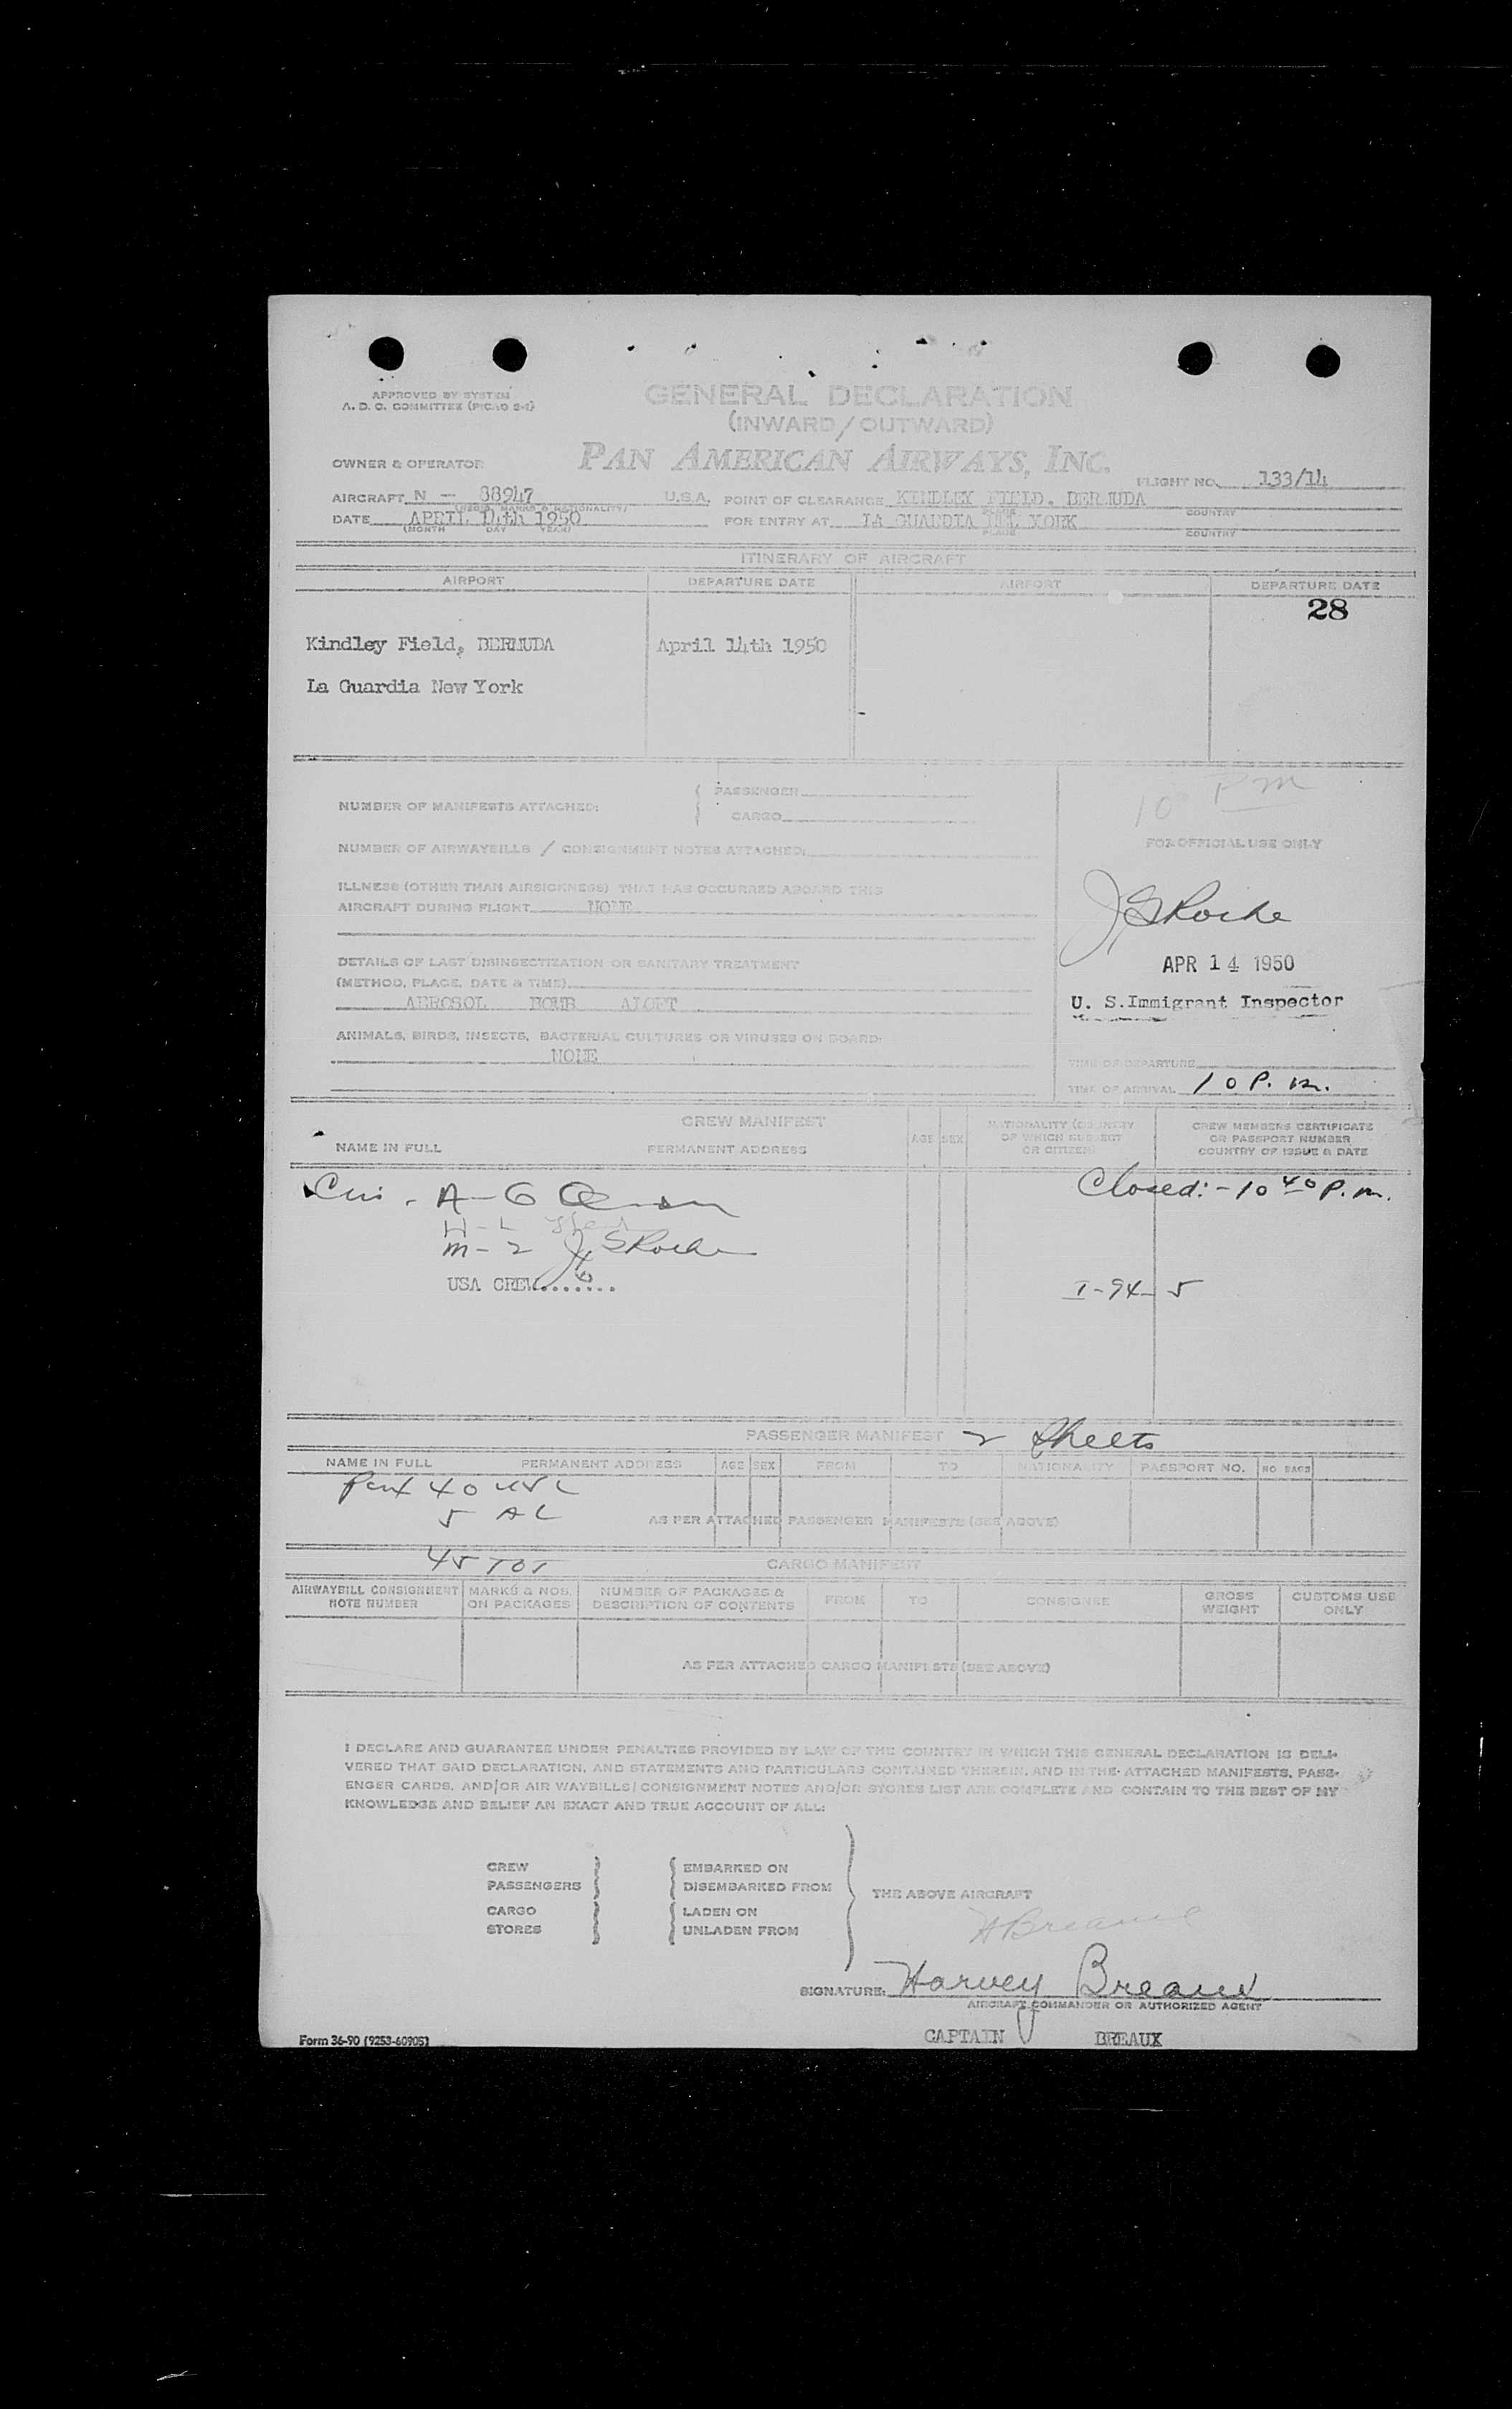 APPROVED BY SYSTEM
A. D. C. COMMITTEE (PICAO 2-1)
GENERAL DECLARATION
(INWARD/OUTWARD)
OWNER & OPERATOR
PAN AMERICAN AIRWAYS, INC.
FLIGHT NO. 133/14
AIRCRAFT N - 88947 U.S.A. POINT OF CLEARANCE KINDLEY FIELD, BERMUDA
PLACE COUNTRY
DATE APRIL 14th 1950 FOR ENTRY AT LA GUARDIA NEW YORK
(MONTH DAY YEAR) PLACE COUNTRY
ITINERARY OF AIRCRAFT
AIRPORT DEPARTURE DATE AIRPORT DEPARTURE DATE
28
Kindley Field, BERMUDA April 14th 1950
La Guardia New York
10 PM
PASSENGER
NUMBER OF MANIFESTS ATTACHED:
CARGO
FOR OFFICIAL USE ONLY
NUMBER OF AIRWAYBILLS / CONSIGNMENT NOTES ATTACHED:
ILLNESS (OTHER THAN AIRSICKNESS) THAT HAS OCCURRED ABOARD THIS
AIRCRAFT DURING FLIGHT NONE
J S Roche
DETAILS OF LAST DISINSECTIZATION OR SANITARY TREATMENT
APR 14 1950
(METHOD, PLACE, DATE & TIME)
AEROSOL BOMB ALOFT
U. S. Immigrant Inspector
ANIMALS, BIRDS, INSECTS, BACTERIAL CULTURES OR VIRUSES ON BOARD:
NONE
TIME OF DEPARTURE
TIME OF ARRIVAL 10 P. m.
CREW MANIFEST
NAME IN FULL PERMANENT ADDRESS AGE SEX NATIONALITY (COUNTRY OF WHICH SUBJECT OR CITIZEN) CREW MEMBERS CERTIFICATE OR PASSPORT NUMBER COUNTRY OF ISSUE & DATE
Closed:- 10 40 P. m.
M-2 J S Roche
USA CREW....... 6
I-94-5
PASSENGER MANIFEST 2 Sheets
NAME IN FULL PERMANENT ADDRESS AGE SEX FROM TO NATIONALITY PASSPORT NO. NO BAGS
40 USC
5 AL
AS PER ATTACHED PASSENGER MANIFESTS (SEE ABOVE)
45 TOT
CARGO MANIFEST
AIRWAYBILL CONSIGNMENT NOTE NUMBER MARKS & NOS. ON PACKAGES NUMBER OF PACKAGES & DESCRIPTION OF CONTENTS FROM TO CONSIGNEE GROSS WEIGHT CUSTOMS USE ONLY
AS PER ATTACHED CARGO MANIFESTS (SEE ABOVE)
I DECLARE AND GUARANTEE UNDER PENALTIES PROVIDED BY LAW OF THE COUNTRY IN WHICH THIS GENERAL DECLARATION IS DELI-
VERED THAT SAID DECLARATION, AND STATEMENTS AND PARTICULARS CONTAINED THEREIN, AND IN THE ATTACHED MANIFESTS, PASS-
ENGER CARDS, AND/OR AIR WAYBILLS/CONSIGNMENT NOTES AND/OR STORES LIST ARE COMPLETE AND CONTAIN TO THE BEST OF MY
KNOWLEDGE AND BELIEF AN EXACT AND TRUE ACCOUNT OF ALL:
CREW EMBARKED ON
PASSENGERS DISEMBARKED FROM
THE ABOVE AIRCRAFT
CARGO LADEN ON
STORES UNLADEN FROM
H Breaux
SIGNATURE: Harvey Breaux
AIRCRAFT COMMANDER OR AUTHORIZED AGENT
CAPTAIN BREAUX
Form 36-90 (9253-60905)